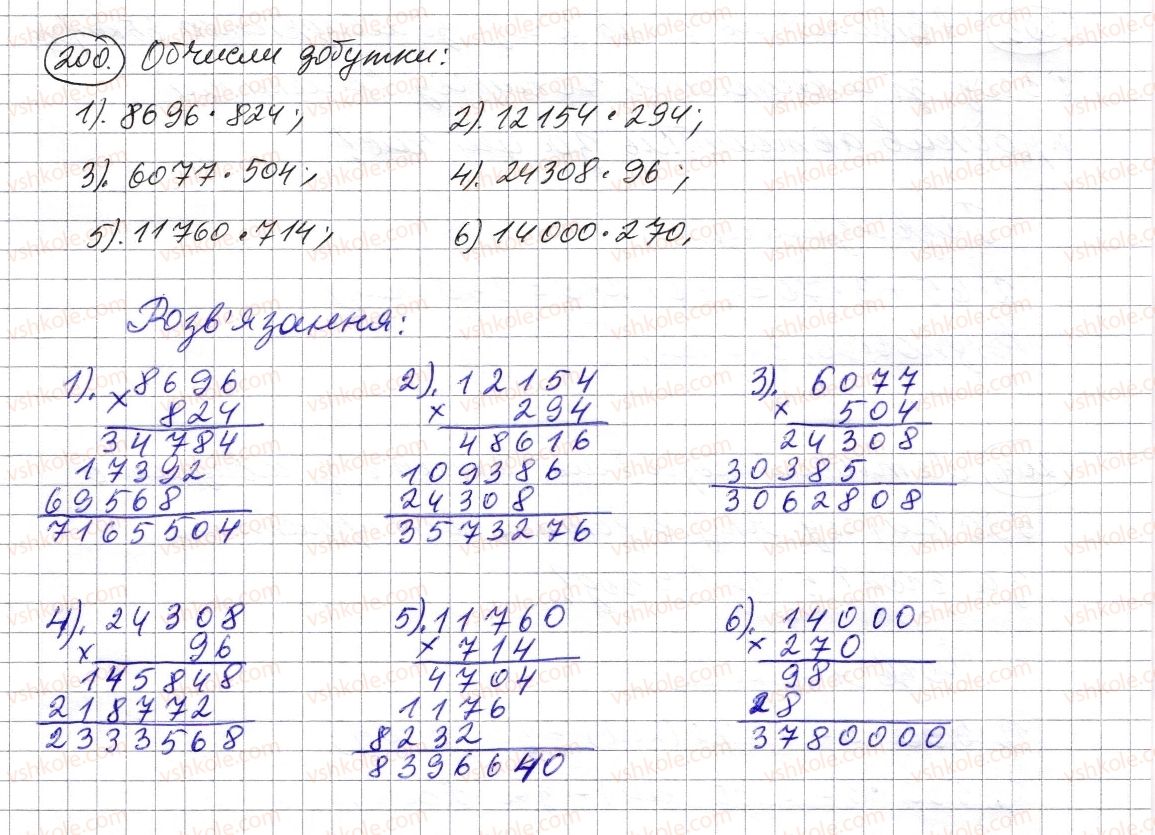 200. Обчисли добутки:
1). 8696 · 824; 2). 12154 · 294;
3). 6077 · 504; 4). 24308 · 96;
5). 11760 · 714; 6) 14000 · 270.
Розв'язання:
1). 8696
× 824
34784
17392
69568
7165504
2). 12154
× 294
48616
109386
24308
3573276
3). 6077
× 504
24308
30385
3062808
4). 24308
× 96
145848
218772
2333568
5). 11760
× 714
4704
1176
8232
8396640
6). 14000
× 270
98
28
3780000